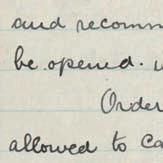 and recomm
be opened.
Order
allowed to ca